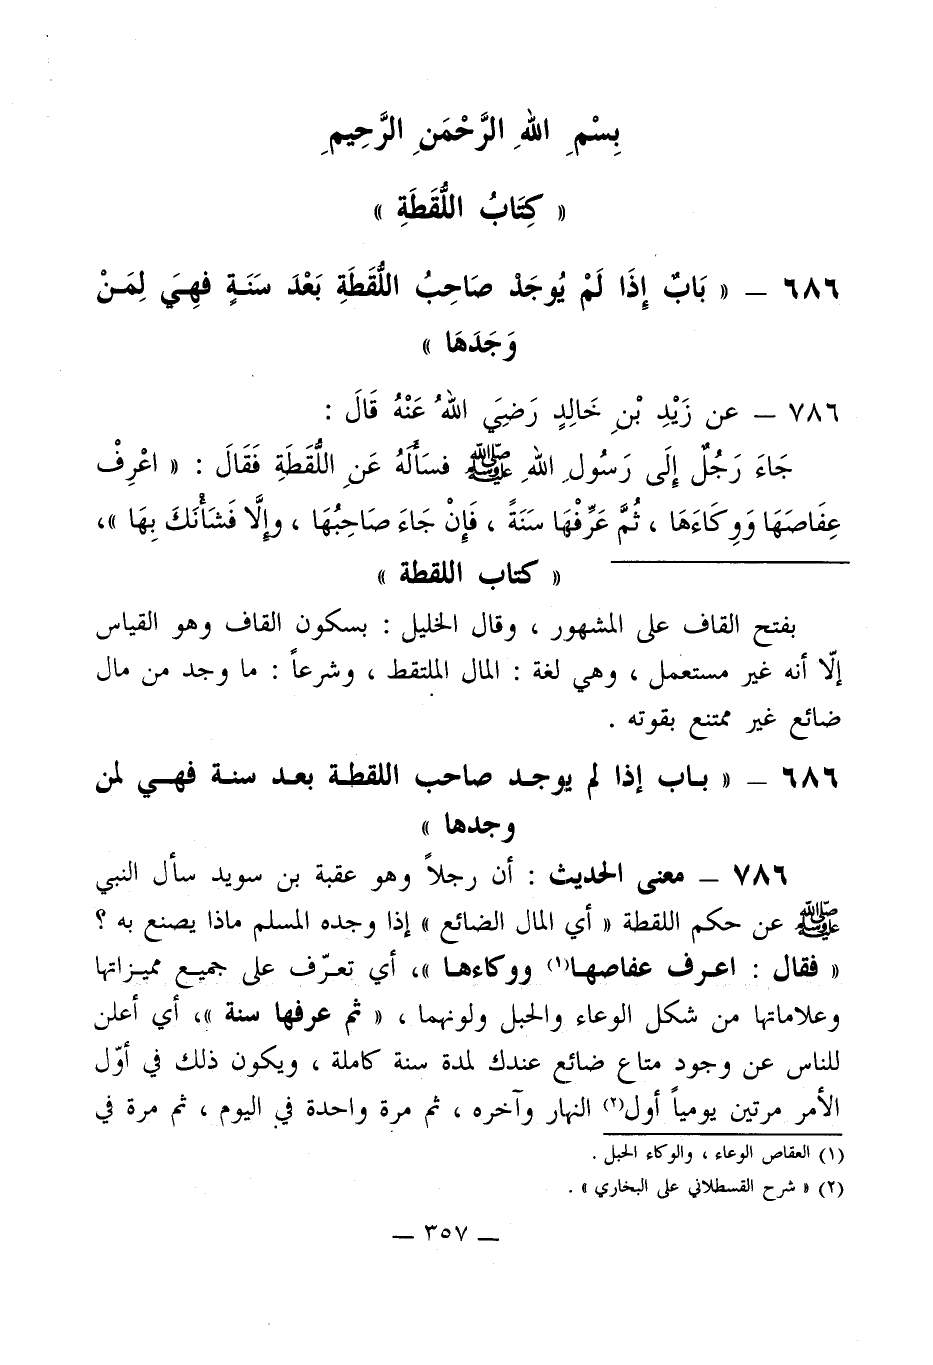 بِسْمِ اللهِ الرَّحْمَنِ الرَّحِيمِ
« كِتَابُ اللُّقَطَةِ »
٦٨٦ — « بَابٌ إِذَا لَمْ يُوجَدْ صَاحِبُ اللُّقَطَةِ بَعْدَ سَنَةٍ فَهِيَ لِمَنْ
وَجَدَهَا »
٧٨٦ — عن زَيْدِ بْنِ خَالِدٍ رَضِيَ اللهُ عَنْهُ قَالَ :
جَاءَ رَجُلٌ إِلَى رَسُولِ اللهِ ﷺ فسَأَلَهُ عَنِ اللُّقَطَةِ فَقَالَ : « اعْرِفْ
عِفَاصَهَا وَوِكَاءَهَا ، ثُمَّ عَرِّفْهَا سَنَةً ، فَإِنْ جَاءَ صَاحِبُهَا ، وإِلَّا فَشَأْنَكَ بِهَا »،
« كتاب اللقطة »
بفتح القاف على المشهور ، وقال الخليل : بسكون القاف وهو القياس
إلّا أنه غير مستعمل ، وهي لغة : المال الملتقط ، وشرعاً : ما وجد من مال
ضائع غير ممتنع بقوته .
٦٨٦ — « باب إذا لم يوجد صاحب اللقطة بعد سنة فهي لمن
وجدها »
٧٨٦ — معنى الحديث : أن رجلاً وهو عقبة بن سويد سأل النبي
ﷺ عن حكم اللقطة « أي المال الضائع » إذا وجده المسلم ماذا يصنع به ؟
« فقال : اعرف عفاصها(١) ووكاءها »، أي تعرّف على جميع مميزاتها
وعلاماتها من شكل الوعاء والحبل ولونهما ، « ثم عرفها سنة »، أي أعلن
للناس عن وجود متاع ضائع عندك لمدة سنة كاملة ، ويكون ذلك في أوّل
الأمر مرتين يومياً أول(٢) النهار وآخره ، ثم مرة واحدة في اليوم ، ثم مرة في
(١) العقاص الوعاء ، والوكاء الحبل .
(٢) « شرح القسطلاني على البخاري » .
— ٣٥٧ —